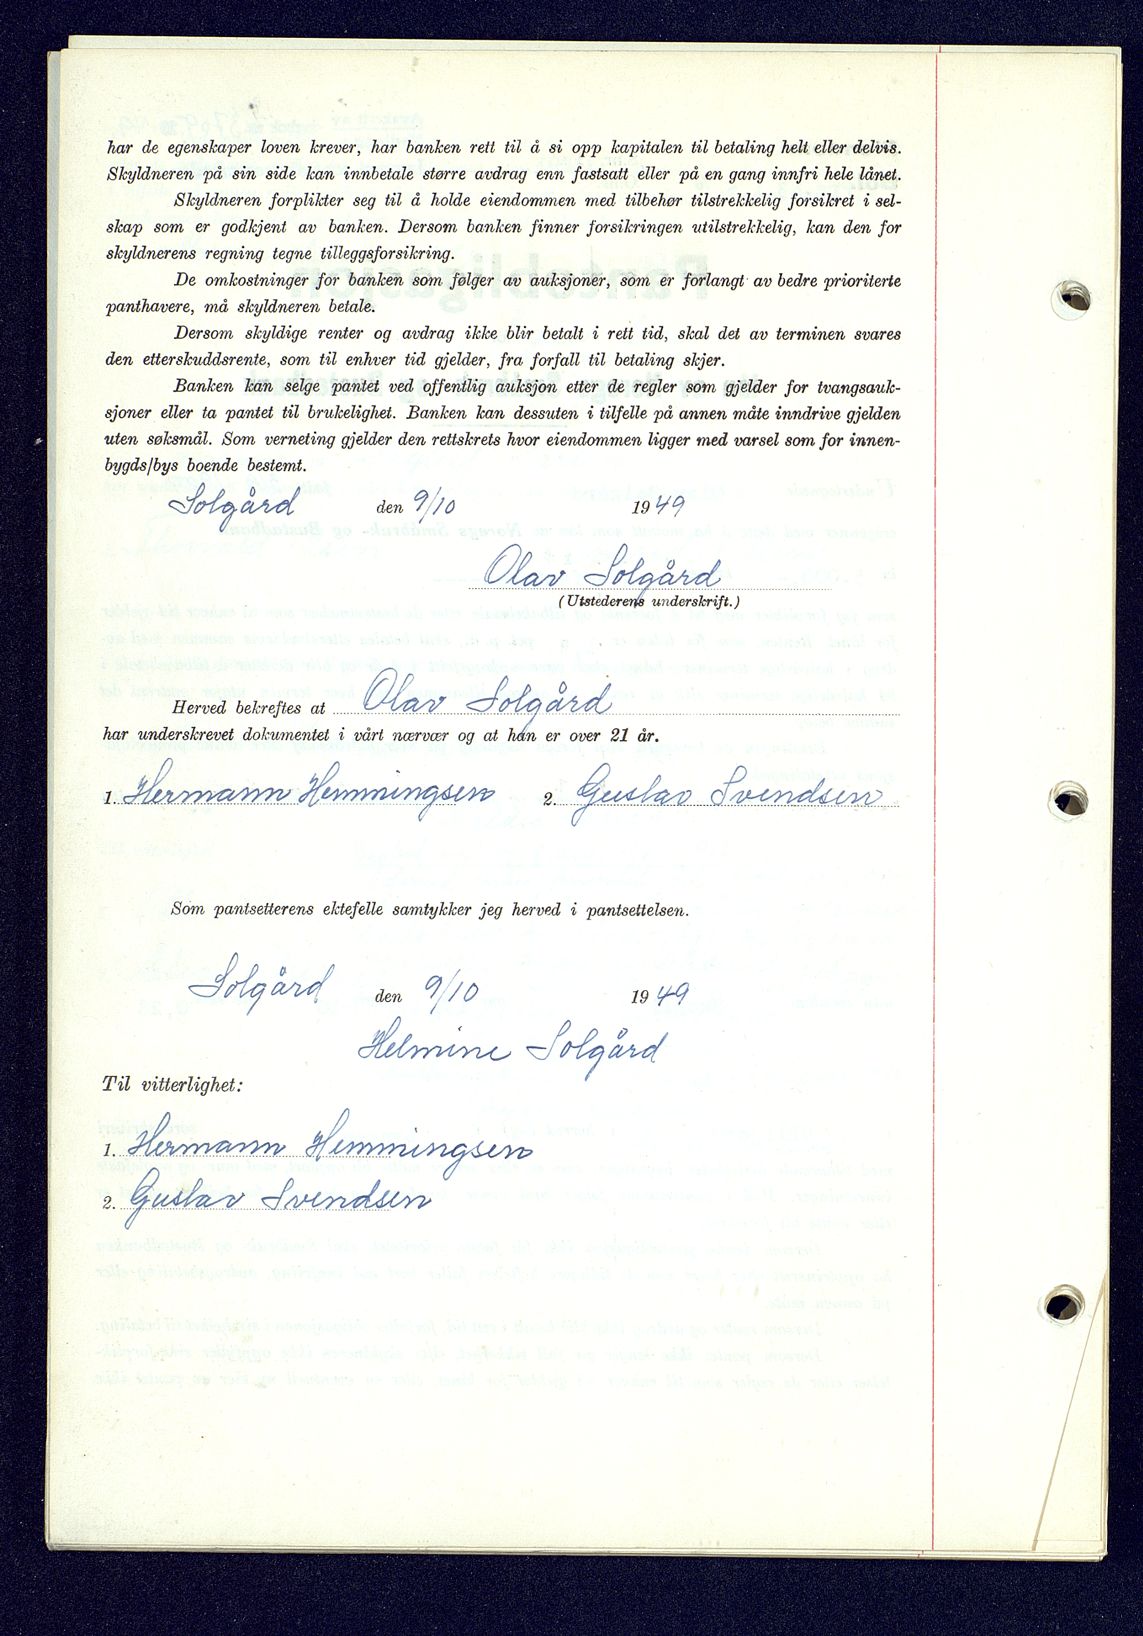 har de egenskaper loven krever, har banken rett til å si opp kapitalen til betaling helt eller delvis.
Skyldneren på sin side kan innbetale større avdrag enn fastsatt eller på en gang innfri hele lånet.
Skyldneren forplikter seg til å holde eiendommen med tilbehør tilstrekkelig forsikret i sel-
skap som er godkjent av banken. Dersom banken finner forsikringen utilstrekkelig, kan den for
skyldnerens regning tegne tilleggsforsikring.
De omkostninger for banken som følger av auksjoner, som er forlangt av bedre prioriterte
panthavere, må skyldneren betale.
Dersom skyldige renter og avdrag ikke blir betalt i rett tid, skal det av terminen svares
den etterskuddsrente, som til enhver tid gjelder, fra forfall til betaling skjer.
Banken kan selge pantet ved offentlig auksjon etter de regler som gjelder for tvangsauk-
sjoner eller ta pantet til brukelighet. Banken kan dessuten i tilfelle på annen måte inndrive gjelden
uten søksmål. Som verneting gjelder den rettskrets hvor eiendommen ligger med varsel som for innen-
bygds/bys boende bestemt.
Solgård den 9/10 1949
Olav Solgård
(Utstederens underskrift.)
Herved bekreftes at Olav Solgård
har underskrevet dokumentet i vårt nærvær og at han er over 21 år.
1. Hermann Hemmingsen 2. Gustav Svendsen
Som pantsetterens ektefelle samtykker jeg herved i pantsettelsen.
Solgård den 9/10 1949
Helmine Solgård
Til vitterlighet:
1. Hermann Hemmingsen
2. Gustav Svendsen